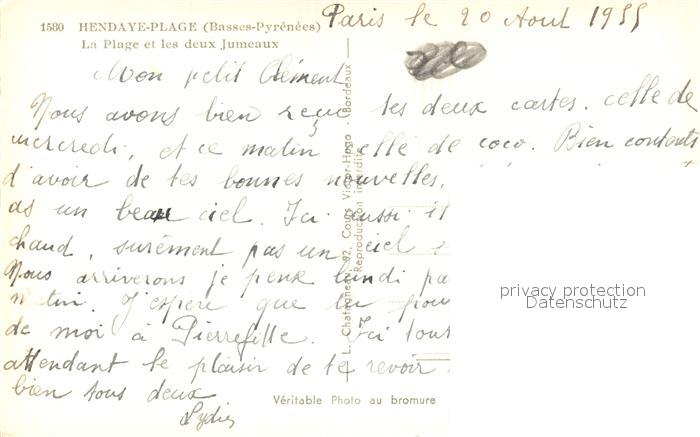 1580 HENDAYE-PLAGE (Basses-Pyrénées)
La Plage et les deux Jumeaux
Paris le 20 Aout 1955
Mon petit Clément
Nous avons bien reçu tes deux cartes. celle de
mercredi, et ce matin celle de coco. Bien contents
d'avoir de tes bonnes nouvelles,
as un beau ciel. Ici aussi il
chaud, surement pas un ciel
Nous arriverons je pense lundi
matin. J'espere que tu
de moi à Pierrefitte. Ici tout
attendant le plaisir de te revoir
bien tous deux
Lydie
L. Chatagneau, 92, Cours Victor-Hugo - Bordeaux
Reproduction interdite
Véritable Photo au bromure
privacy protection
Datenschutz